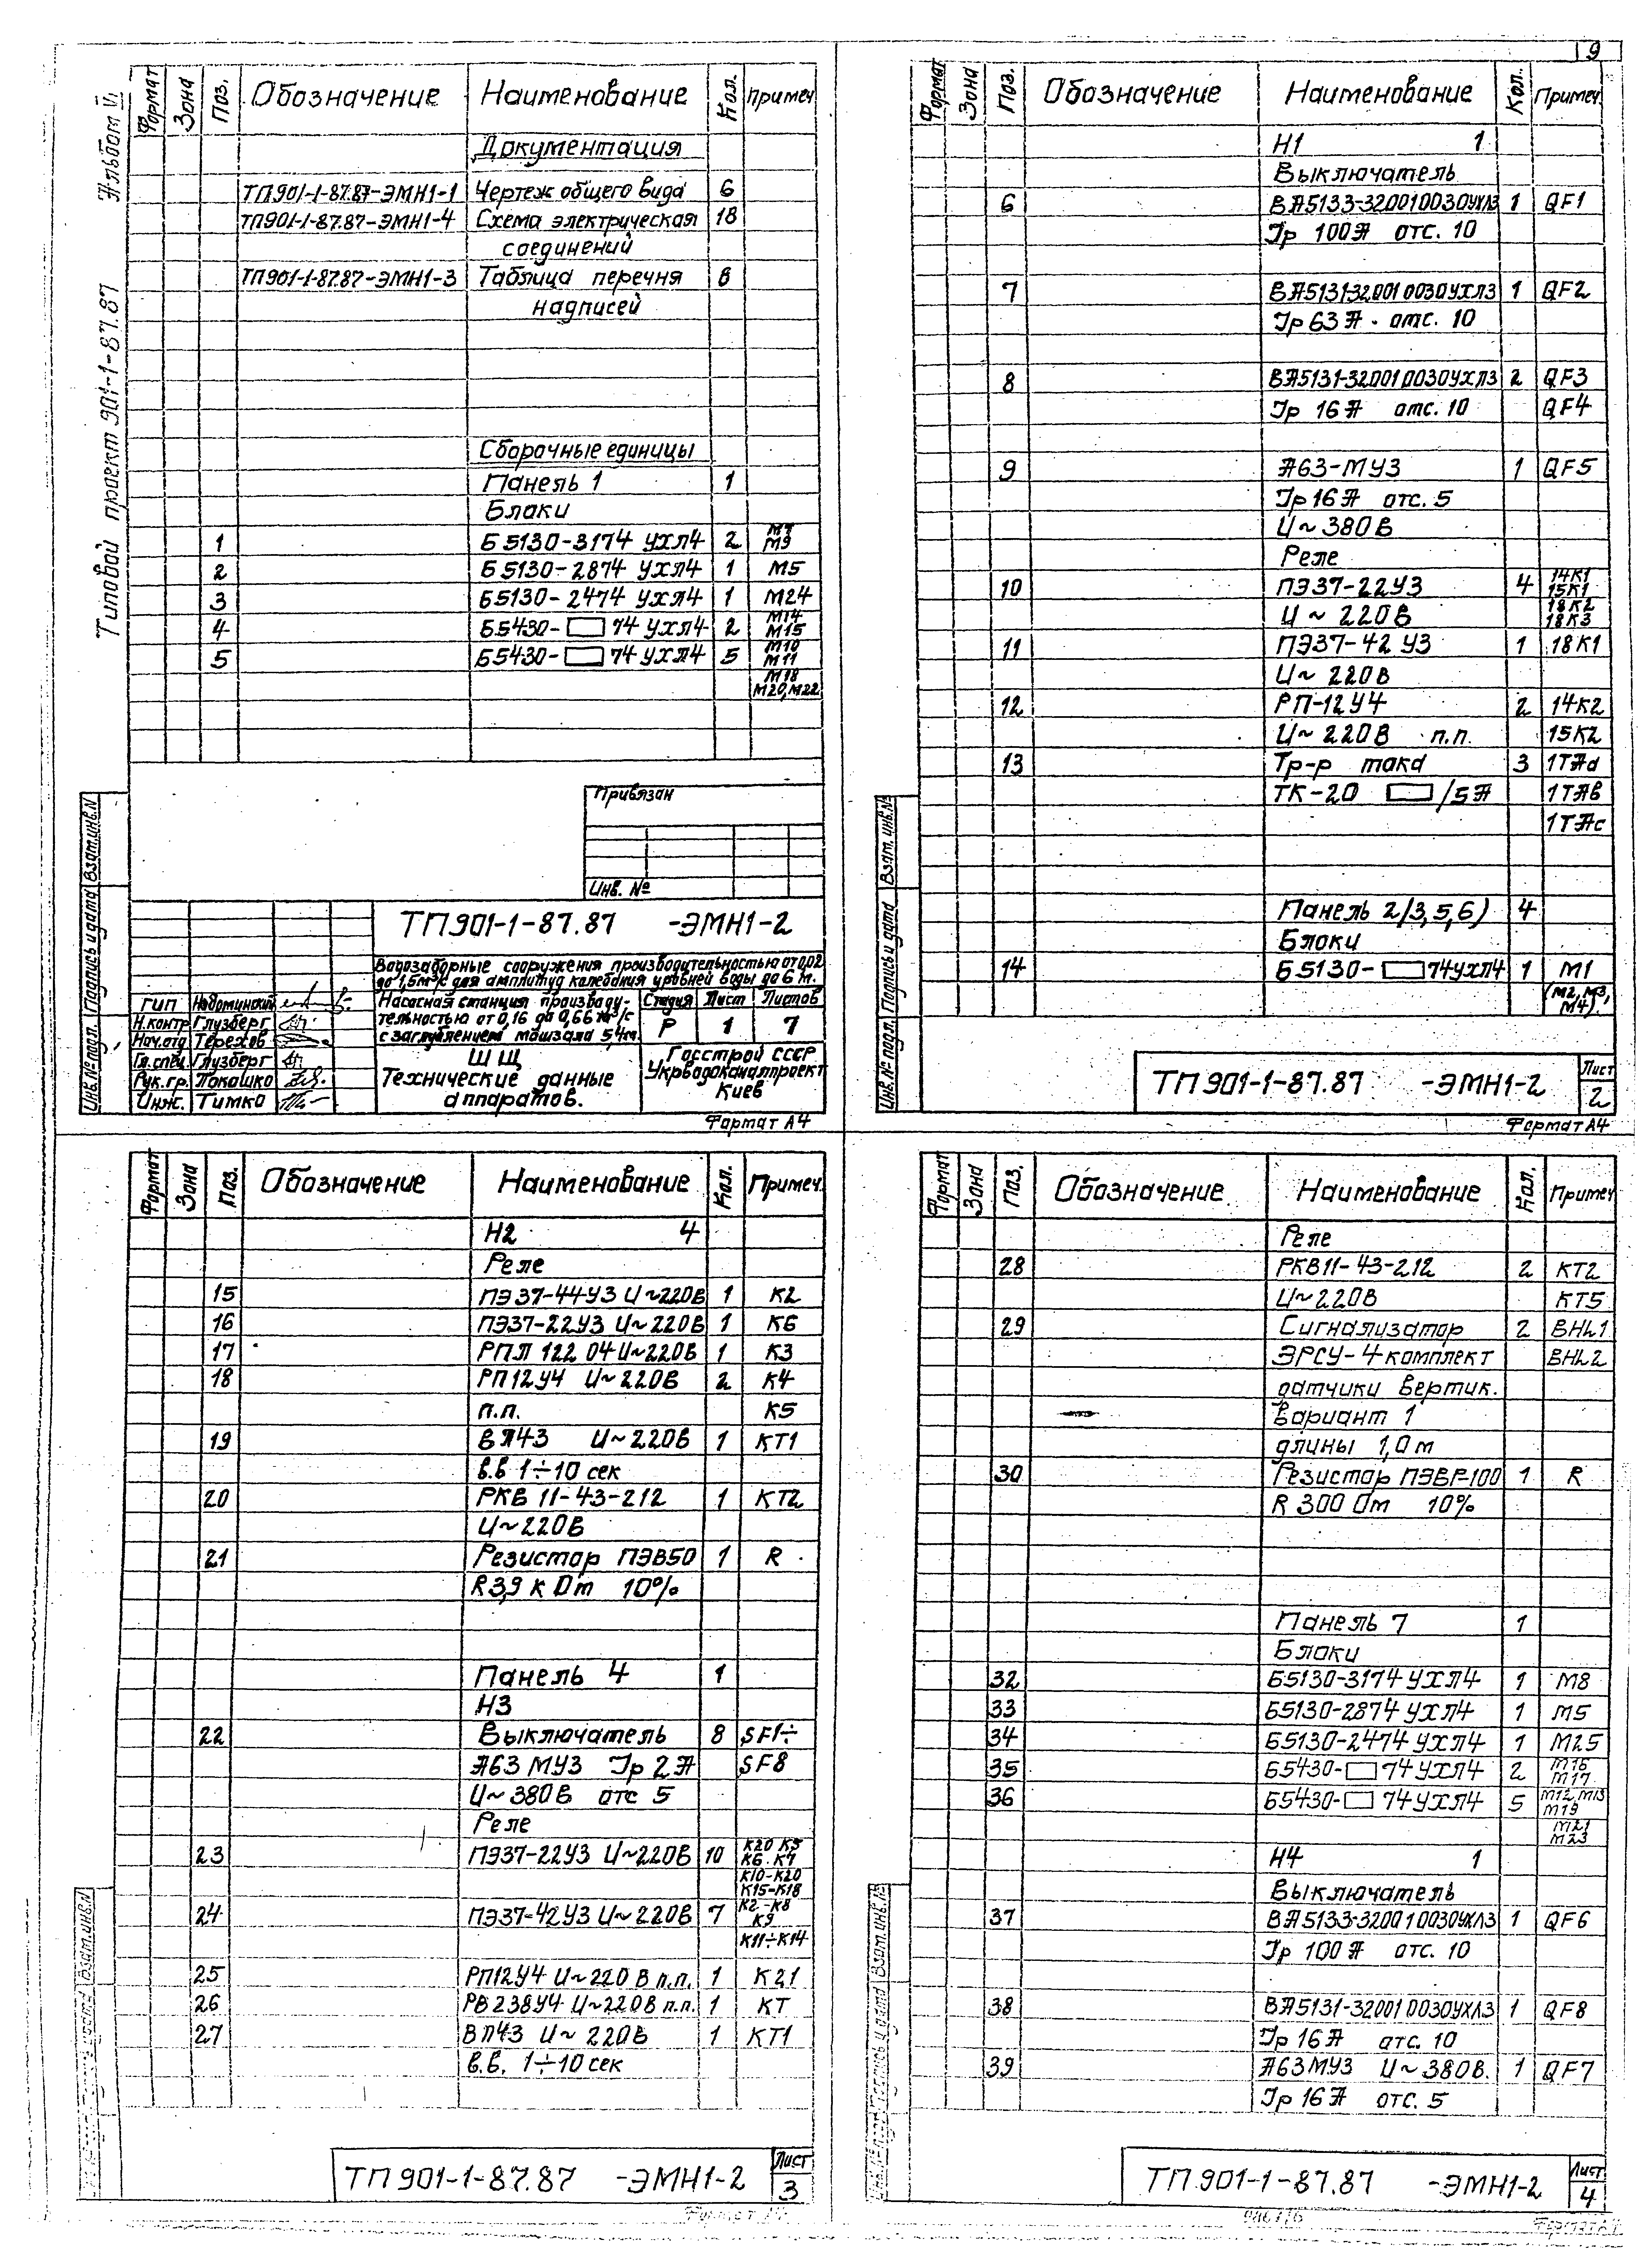 9
Типовой проект 901-1-87.87 Альбом VI
Формат Зона Поз. Обозначение Наименование Кол. Примеч
Документация
ТП901-1-87.87-ЭМН1-1 Чертеж общего вида 6
ТП901-1-87.87-ЭМН1-4 Схема электрическая 18
соединений
ТП901-1-87.87-ЭМН1-3 Таблица перечня 8
надписей
Сборочные единицы
Панель 1 1
Блоки
1 Б5130-3174 УХЛ4 2 М7
М9
2 Б5130-2874 УХЛ4 1 М5
3 Б5130-2474 УХЛ4 1 М24
4 Б5430-▭74 УХЛ4 2 М14
М15
5 Б5430-▭74 УХЛ4 5 М10
М11
М18
М20, М22
Привязан
Инв. №
Инв.№подл. Подпись и дата Взам.инв.№
ТП901-1-87.87 -ЭМН1-2
Водозаборные сооружения производительностью от 0,02
до 1,5м³/с для амплитуд колебания уровней воды до 6 м.
ГИП
Н.контр Глузберг
Нач.отд Терехов
Гл.спец. Глузберг
Рук.гр. Покашко
Инж. Тимко
Насосная станция производи-
тельностью от 0,16 до 0,66 м³/с
с заглублением машзала 5,4м
Стадия Лист Листов
Р 1 7
ШЩ
Технические данные
аппаратов.
Госстрой СССР
Укрводоканалпроект
Киев
Формат А4
Формат Зона Поз. Обозначение Наименование Кол. Примеч.
Н1 1
Выключатель
6 ВА5133-32001 0030УХЛ3 1 QF1
Iр 100А отс. 10
7 ВА5131-32001 0030УХЛ3 1 QF2
Iр 63А. отс. 10
8 ВА5131-32001 0030УХЛ3 2 QF3
Iр 16А отс. 10 QF4
9 А63-МУ3 1 QF5
Iр 16А отс. 5
U~380В
Реле
10 ПЭ37-22У3 4 14К1
15К1
U~220В 18К2
18К3
11 ПЭ37-42 У3 1 18К1
U~220В
12 РП-12У4 2 14К2
U~220В п.п. 15К2
13 Тр-р тока 3 1ТАа
ТК-20 ▭/5А 1ТАв
1ТАс
Панель 2/3,5,6) 4
Блоки
14 Б5130-▭74УХЛ4 1 М1
(М2, М3,
М4)
Инв.№ подл. Подпись и дата Взам. инв.№
ТП901-1-87.87 -ЭМН1-2 Лист
2
Формат А4
Формат Зона Поз. Обозначение Наименование Кол. Примеч.
Н2 4
Реле
15 ПЭ37-44У3 U~220В 1 К2
16 ПЭ37-22У3 U~220В 1 К6
17 РПЛ 122 04 U~220В 1 К3
18 РП12У4 U~220В 2 К4
п.п. К5
19 ВЛ43 U~220В 1 КТ1
в.в 1÷10 сек
20 РКВ 11-43-212 1 КТ2
U~220В
21 Резистор ПЭВ50 1 R
R3,9 к Ом 10%
Панель 4 1
Н3
22 Выключатель 8 SF1÷
А63 МУ3 Iр 2А SF8
U~380В отс 5
Реле
23 ПЭ37-22У3 U~220В 10 К20 К5
К6 К7
К10-К20
К15-К18
24 ПЭ37-42У3 U~220В 7 К2-К8
К9
К11÷К14
25 РП12У4 U~220 В п.п. 1 К21
26 РВ238У4 U~220В п.п. 1 КТ
27 ВЛ43 U~220В 1 КТ1
в.в. 1÷10 сек
ТП901-1-87.87 -ЭМН1-2 Лист
3
Формат Зона Поз. Обозначение Наименование Кол. Примеч
Реле
28 РКВ11-43-212 2 КТ2
U~220В КТ5
29 Сигнализатор 2 ВНL1
ЭРСУ-4 комплект ВНL2
датчики вертик.
Вариант 1
длины 1,0м
30 Резистор ПЭВР-100 1 R
R 300 Ом 10%
Панель 7 1
Блоки
32 Б5130-3174 УХЛ4 1 М8
33 Б5130-2874 УХЛ4 1 М5
34 Б5130-2474 УХЛ4 1 М25
35 Б5430-▭74 УХЛ4 2 М16
М17
36 Б5430-▭74 УХЛ4 5 М12, М13
М19
М21
М23
Н4 1
Выключатель
37 ВА5133-32001 0030УХЛ3 1 QF6
Iр 100А отс. 10
38 ВА5131-32001 0030УХЛ3 1 QF8
Iр 16А отс. 10
39 А63МУ3 U~380В. 1 QF7
Iр 16А отс. 5
ТП901-1-87.87 -ЭМН1-2 Лист
4